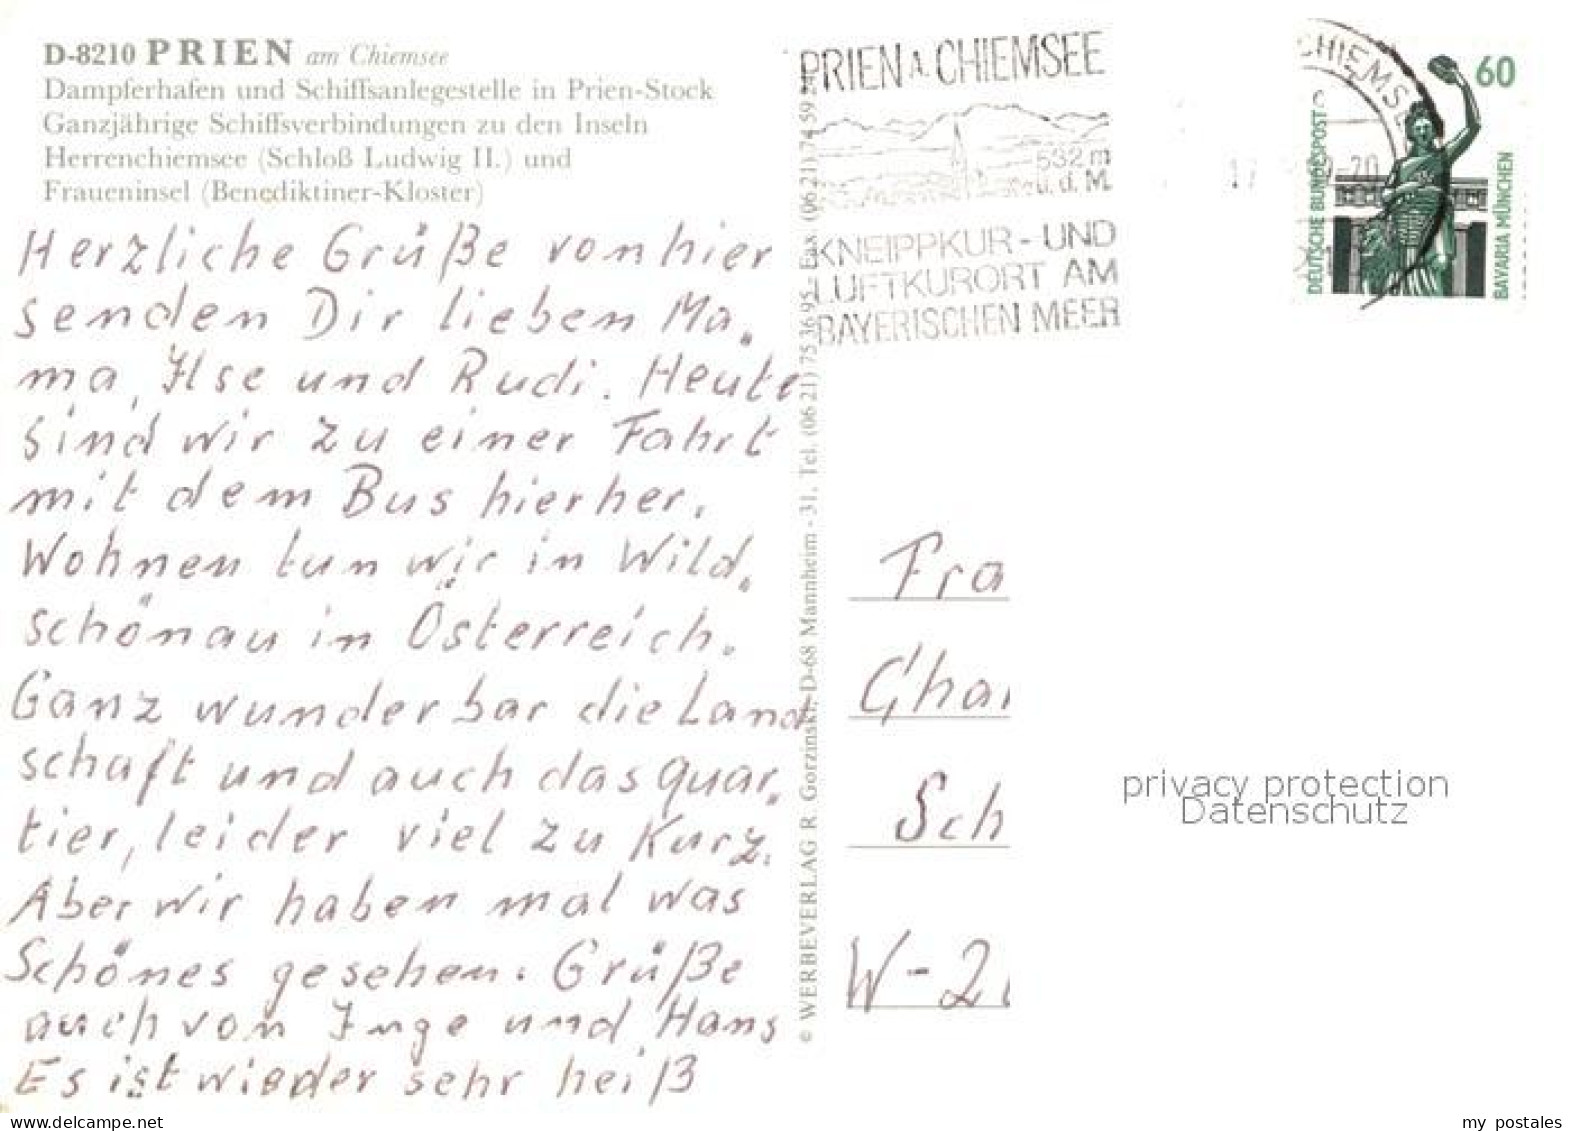 D-8210 PRIEN am Chiemsee
Dampferhafen und Schiffsanlegestelle in Prien-Stock
Ganzjährige Schiffsverbindungen zu den Inseln
Herrenchiemsee (Schloß Ludwig II.) und
Fraueninsel (Benediktiner-Kloster)
Herzliche Grüße von hier
senden Dir lieben Ma-
ma, Ilse und Rudi. Heute
sind wir zu einer Fahrt
mit dem Bus hierher.
Wohnen tun wir in Wild-
schönau in Österreich.
Ganz wunderbar die Land
schaft und auch das Quar-
tier, leider viel zu Kurz.
Aber wir haben mal was
Schönes gesehen. Grüße
auch von Inge und Hans
Es ist wieder sehr heiß
© WERBEVERLAG R. Gorzinski, D-68 Mannheim - 31, Tel. (06 21) 75 36 95 - Fax. (06 21) 74 59
PRIEN A. CHIEMSEE
532 m
ü. d. M.
KNEIPPKUR- UND
LUFTKURORT AM
BAYERISCHEN MEER
CHIEMSE
60
DEUTSCHE BUNDESPOST
BAVARIA MÜNCHEN
Fra
Char
Sch
W-2
privacy protection
Datenschutz
my postales